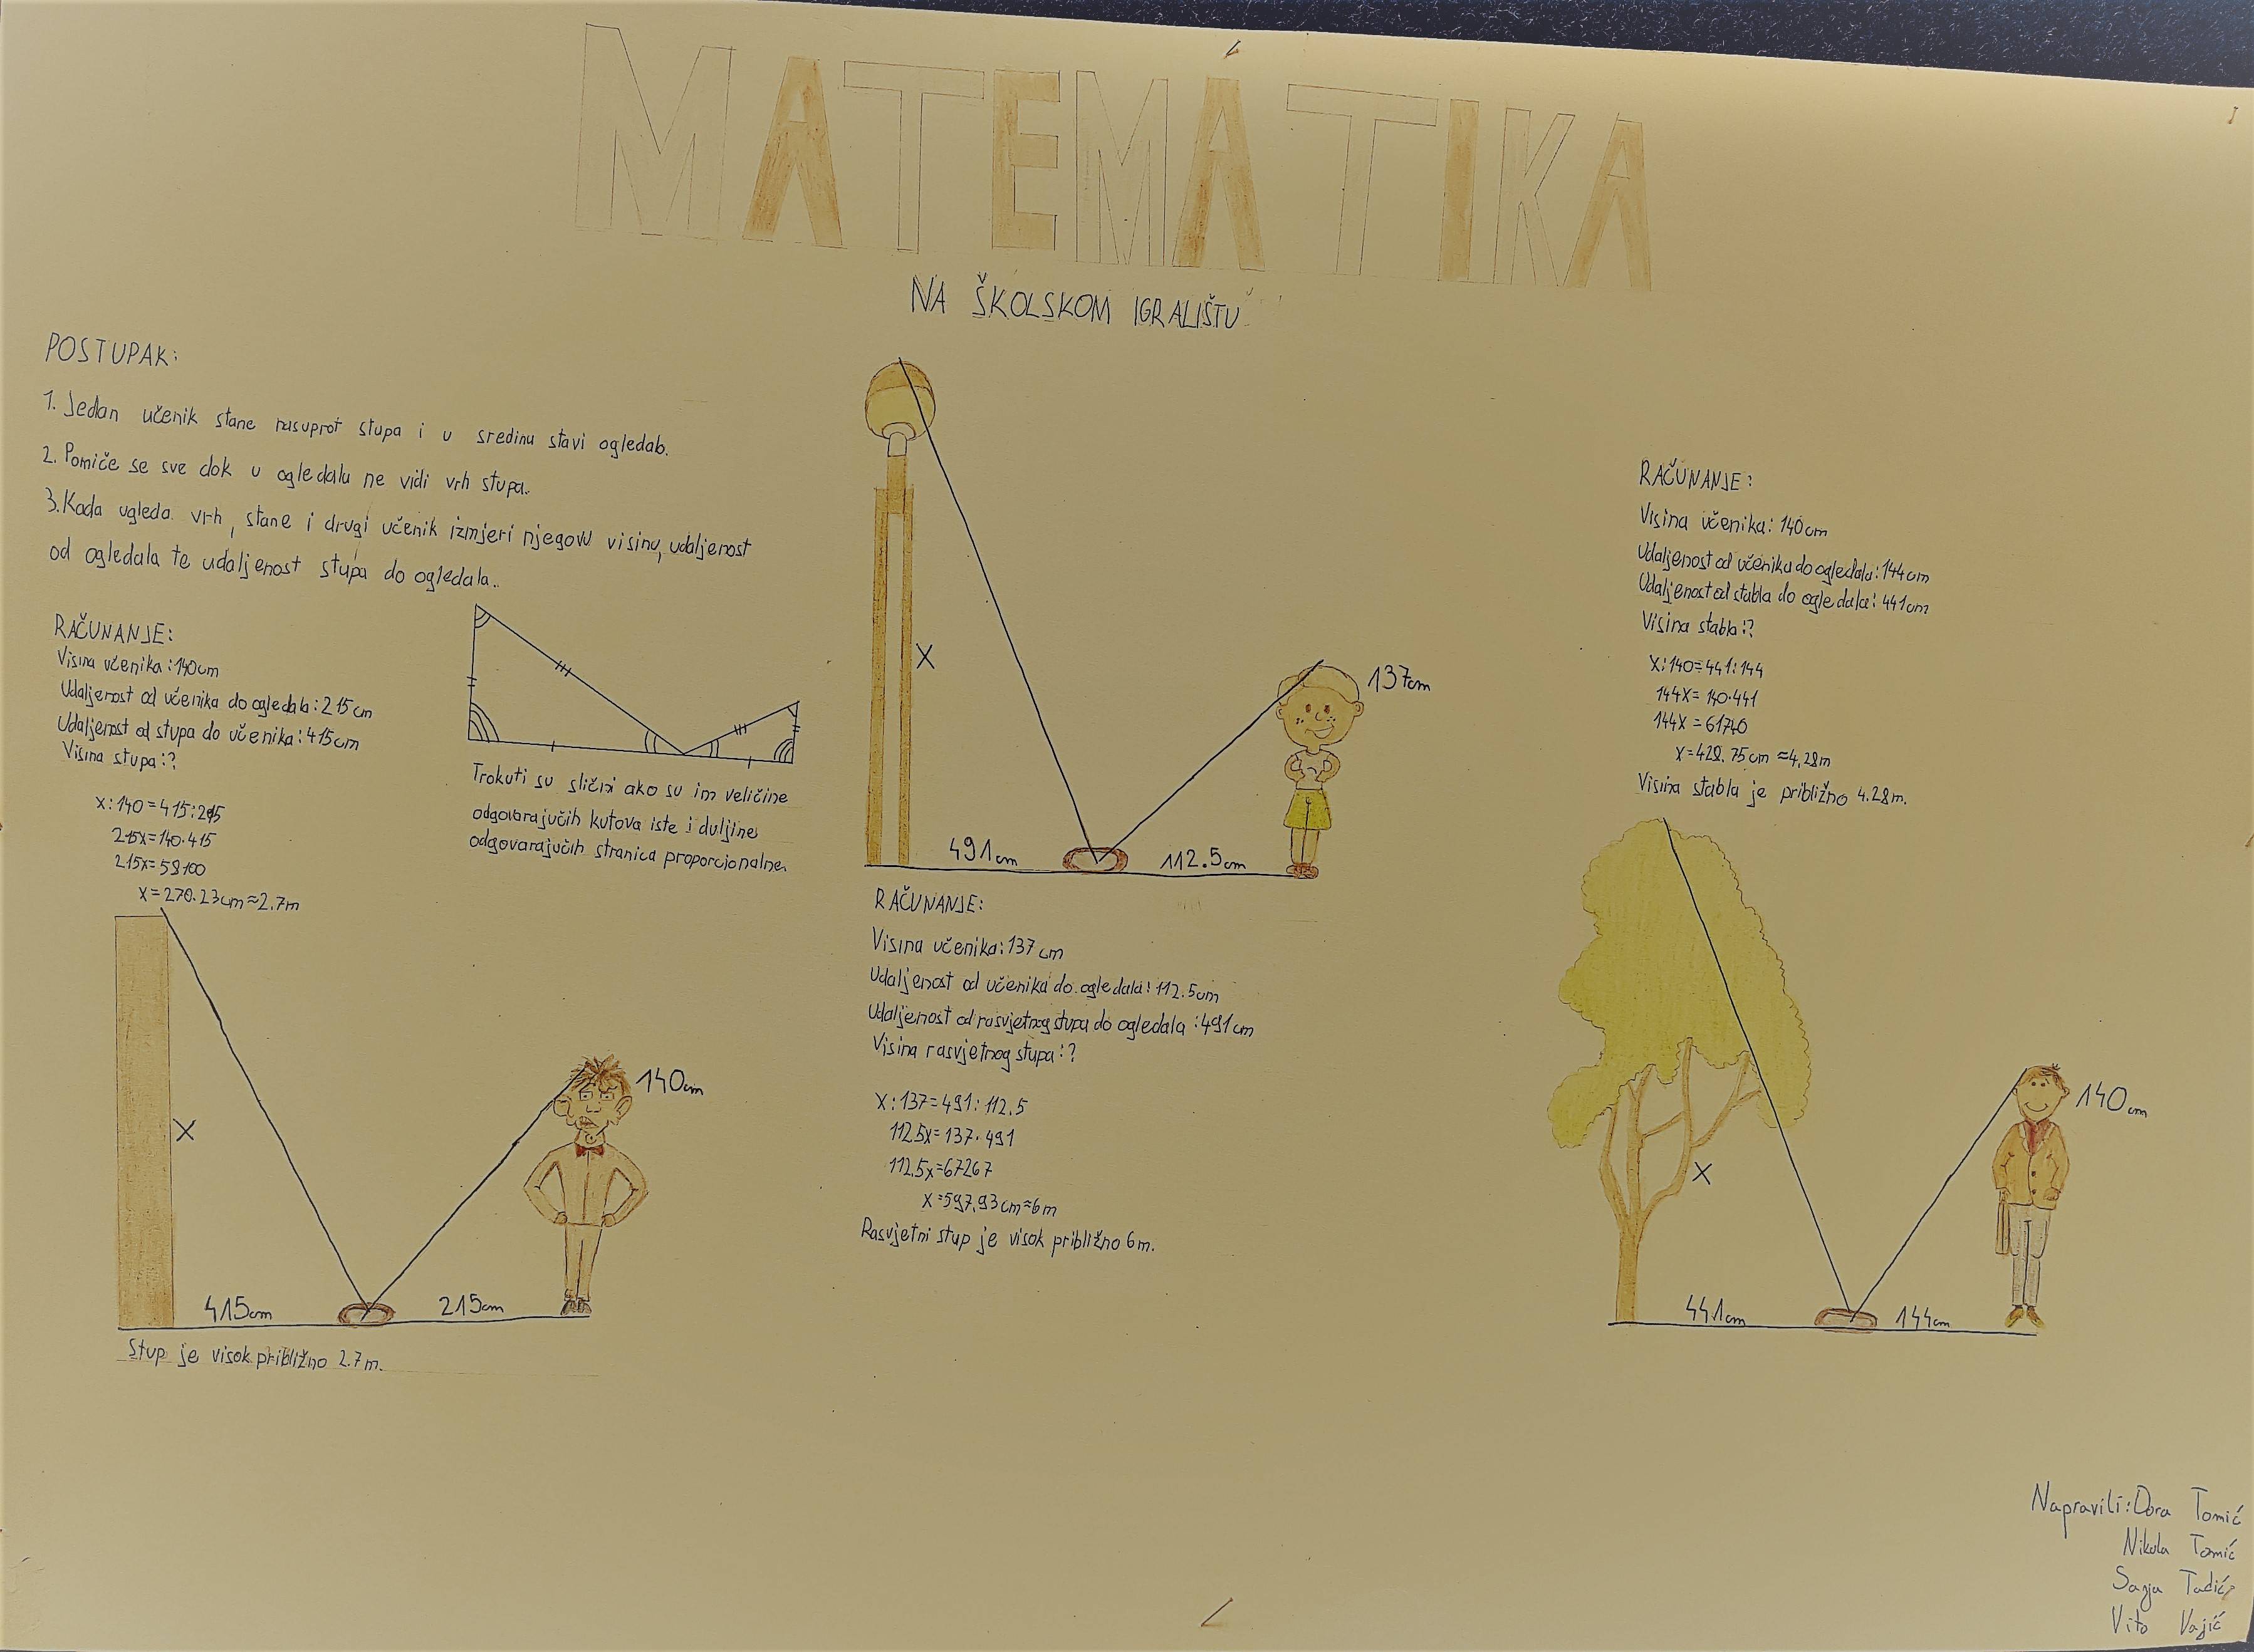 MATEMATIKA
NA ŠKOLSKOM IGRALIŠTU
POSTUPAK:
1. Jedan učenik stane nasuprot stupa i u sredinu stavi ogledalo.
2. Pomiče se sve dok u ogledalu ne vidi vrh stupa.
3. Kada ugleda vrh, stane i drugi učenik izmjeri njegovu visinu, udaljenost
od ogledala te udaljenost stupa do ogledala..
RAČUNANJE:
Visina učenika: 140cm
Udaljenost od učenika do ogledala: 215cm
Udaljenost od stupa do učenika: 415cm
Visina stupa:?
x:140=415:215
215x=140·415
215x=58100
x=270.23cm≈2.7m
Trokuti su slični ako su im veličine
odgovarajućih kutova iste i duljine
odgovarajućih stranica proporcionalne.
X
140cm
415cm
215cm
Stup je visok približno 2.7m.
X
137cm
491cm
112.5cm
RAČUNANJE:
Visina učenika: 137cm
Udaljenost od učenika do ogledala: 112.5cm
Udaljenost od rasvjetnog stupa do ogledala: 491cm
Visina rasvjetnog stupa:?
X:137=491:112.5
112.5x=137·491
112.5x=67267
x=597,93cm≈6m
Rasvjetni stup je visok približno 6m.
RAČUNANJE:
Visina učenika: 140cm
Udaljenost od učenika do ogledala: 144cm
Udaljenost od stabla do ogledala: 441cm
Visina stabla:?
X:140=441:144
144X=140·441
144X=61740
X=428.75cm≈4,28m
Visina stabla je približno 4.28m.
X
140cm
441cm
144cm
Napravili: Dora Tomić
Nikola Tomić
Sanja Tadić
Vito Vajić